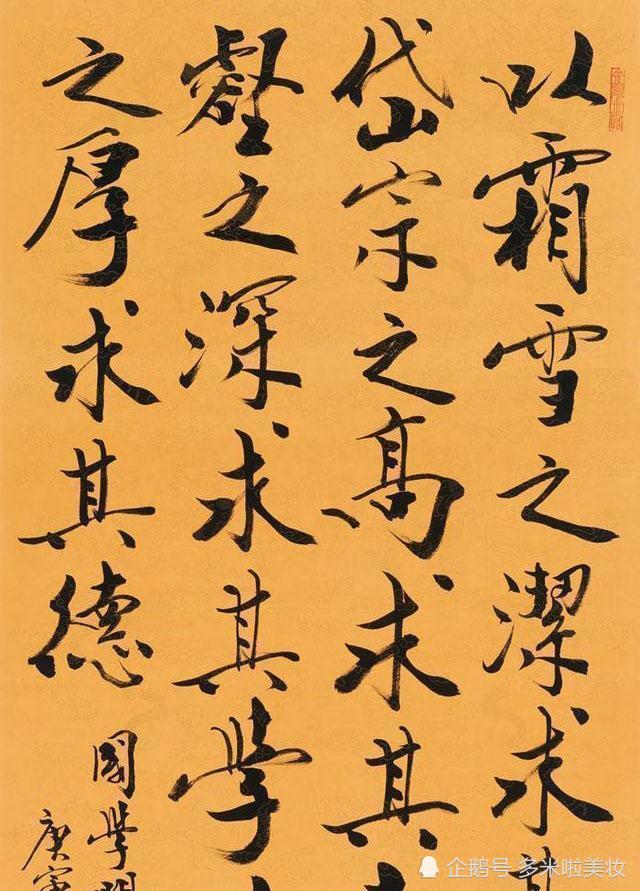 以霜雪之潔求
岱宗之高求其
壑之深求其學
之厚求其德
國學
庚寅
企鹅号 多米啦美妆